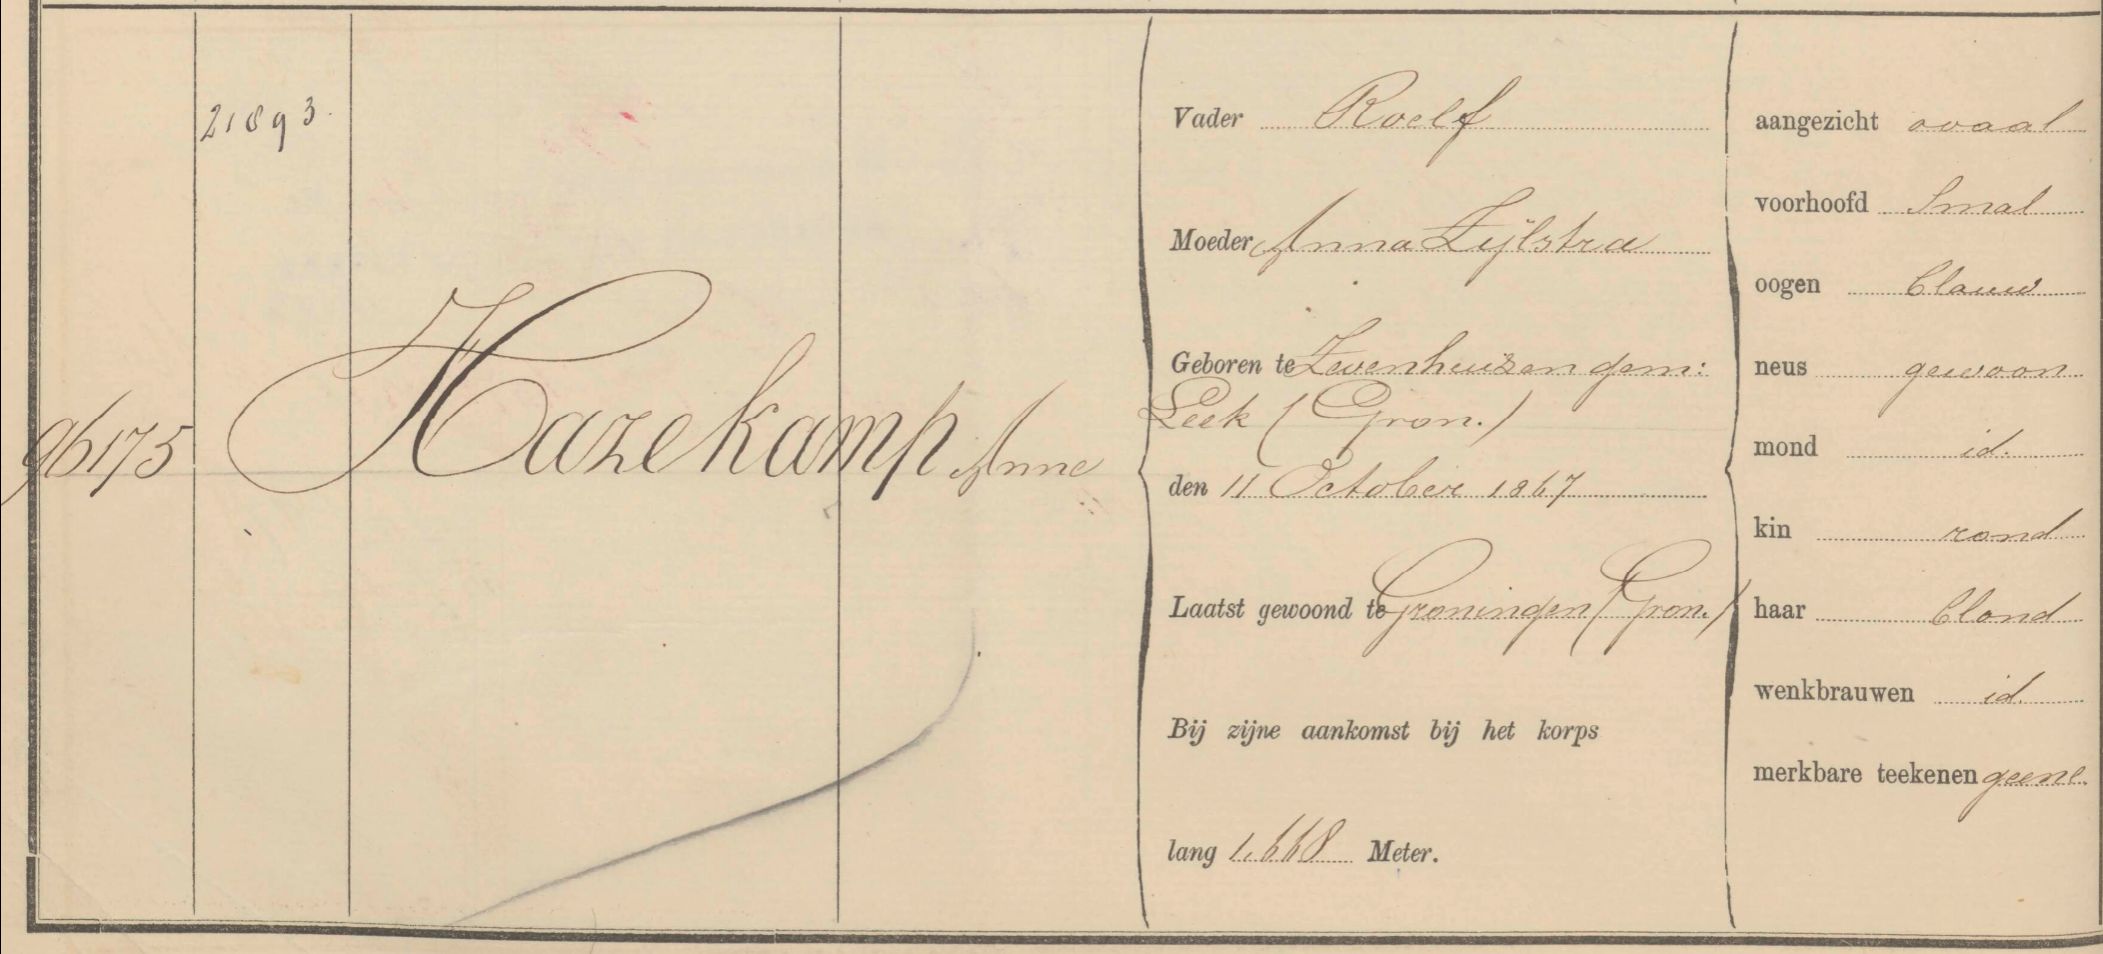 96175
21893
Hazekamp Anne
Vader Roelf
Moeder Anna Zijlstra
Geboren te Zevenhuizen gem:
Leek (Gron.)
den 11 October 1867
Laatst gewoond te Groningen (Gron.)
Bij zijne aankomst bij het korps
lang 1.668 Meter.
aangezicht ovaal
voorhoofd Smal
oogen blauw
neus gewoon
mond id.
kin rond
haar blond
wenkbrauwen id.
merkbare teekenen geene.